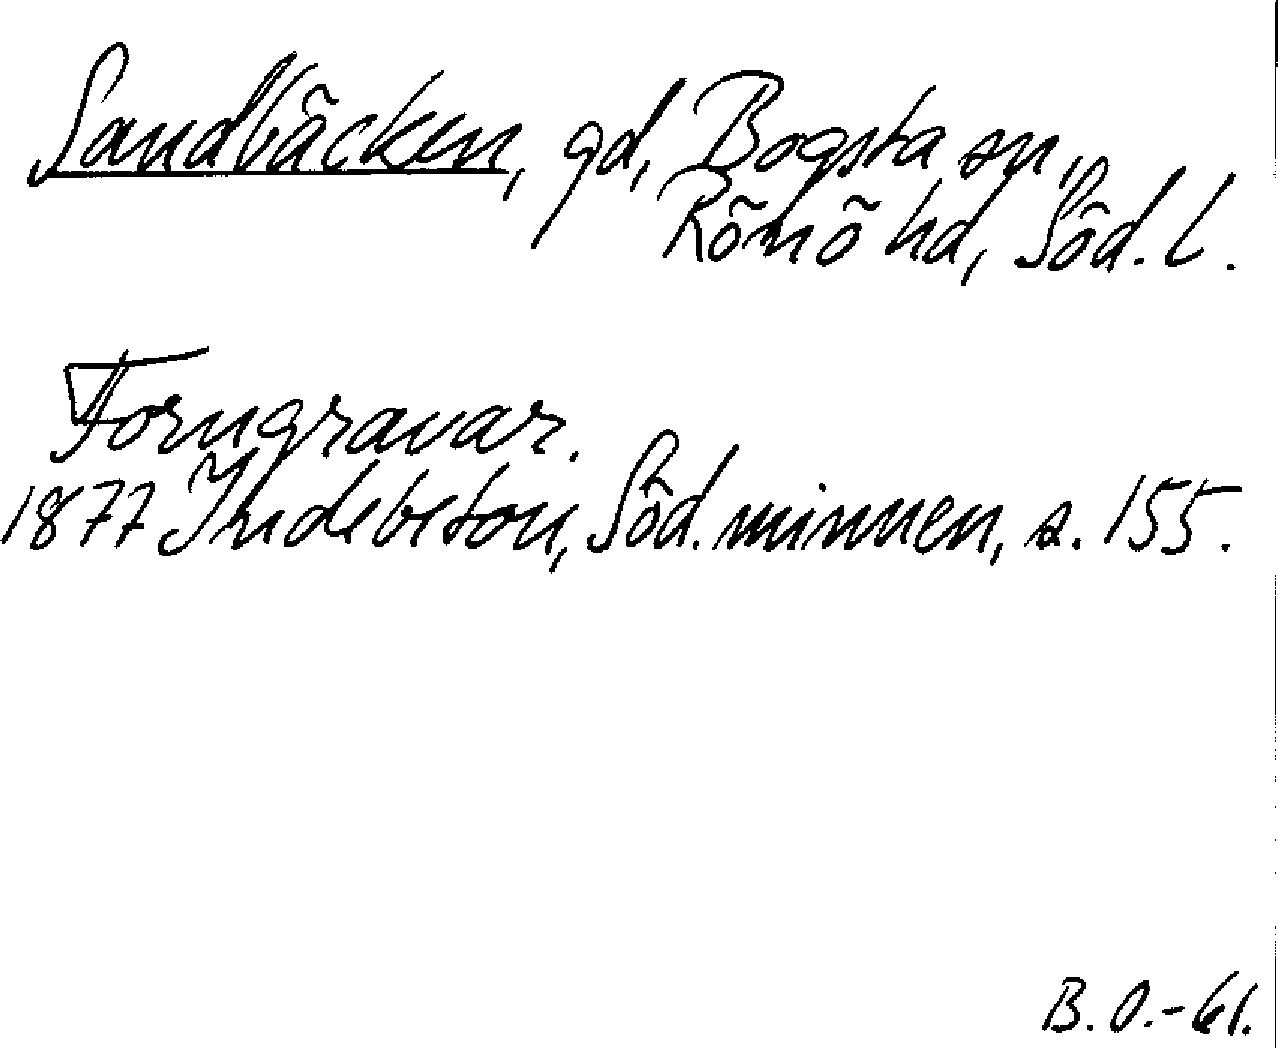 Sandbäcken, gd, Bogsta sn,
Rönö hd, Söd. l.
Forngravar.
1877 Indebetou, Söd. minnen, s. 155.
B. O.-61.